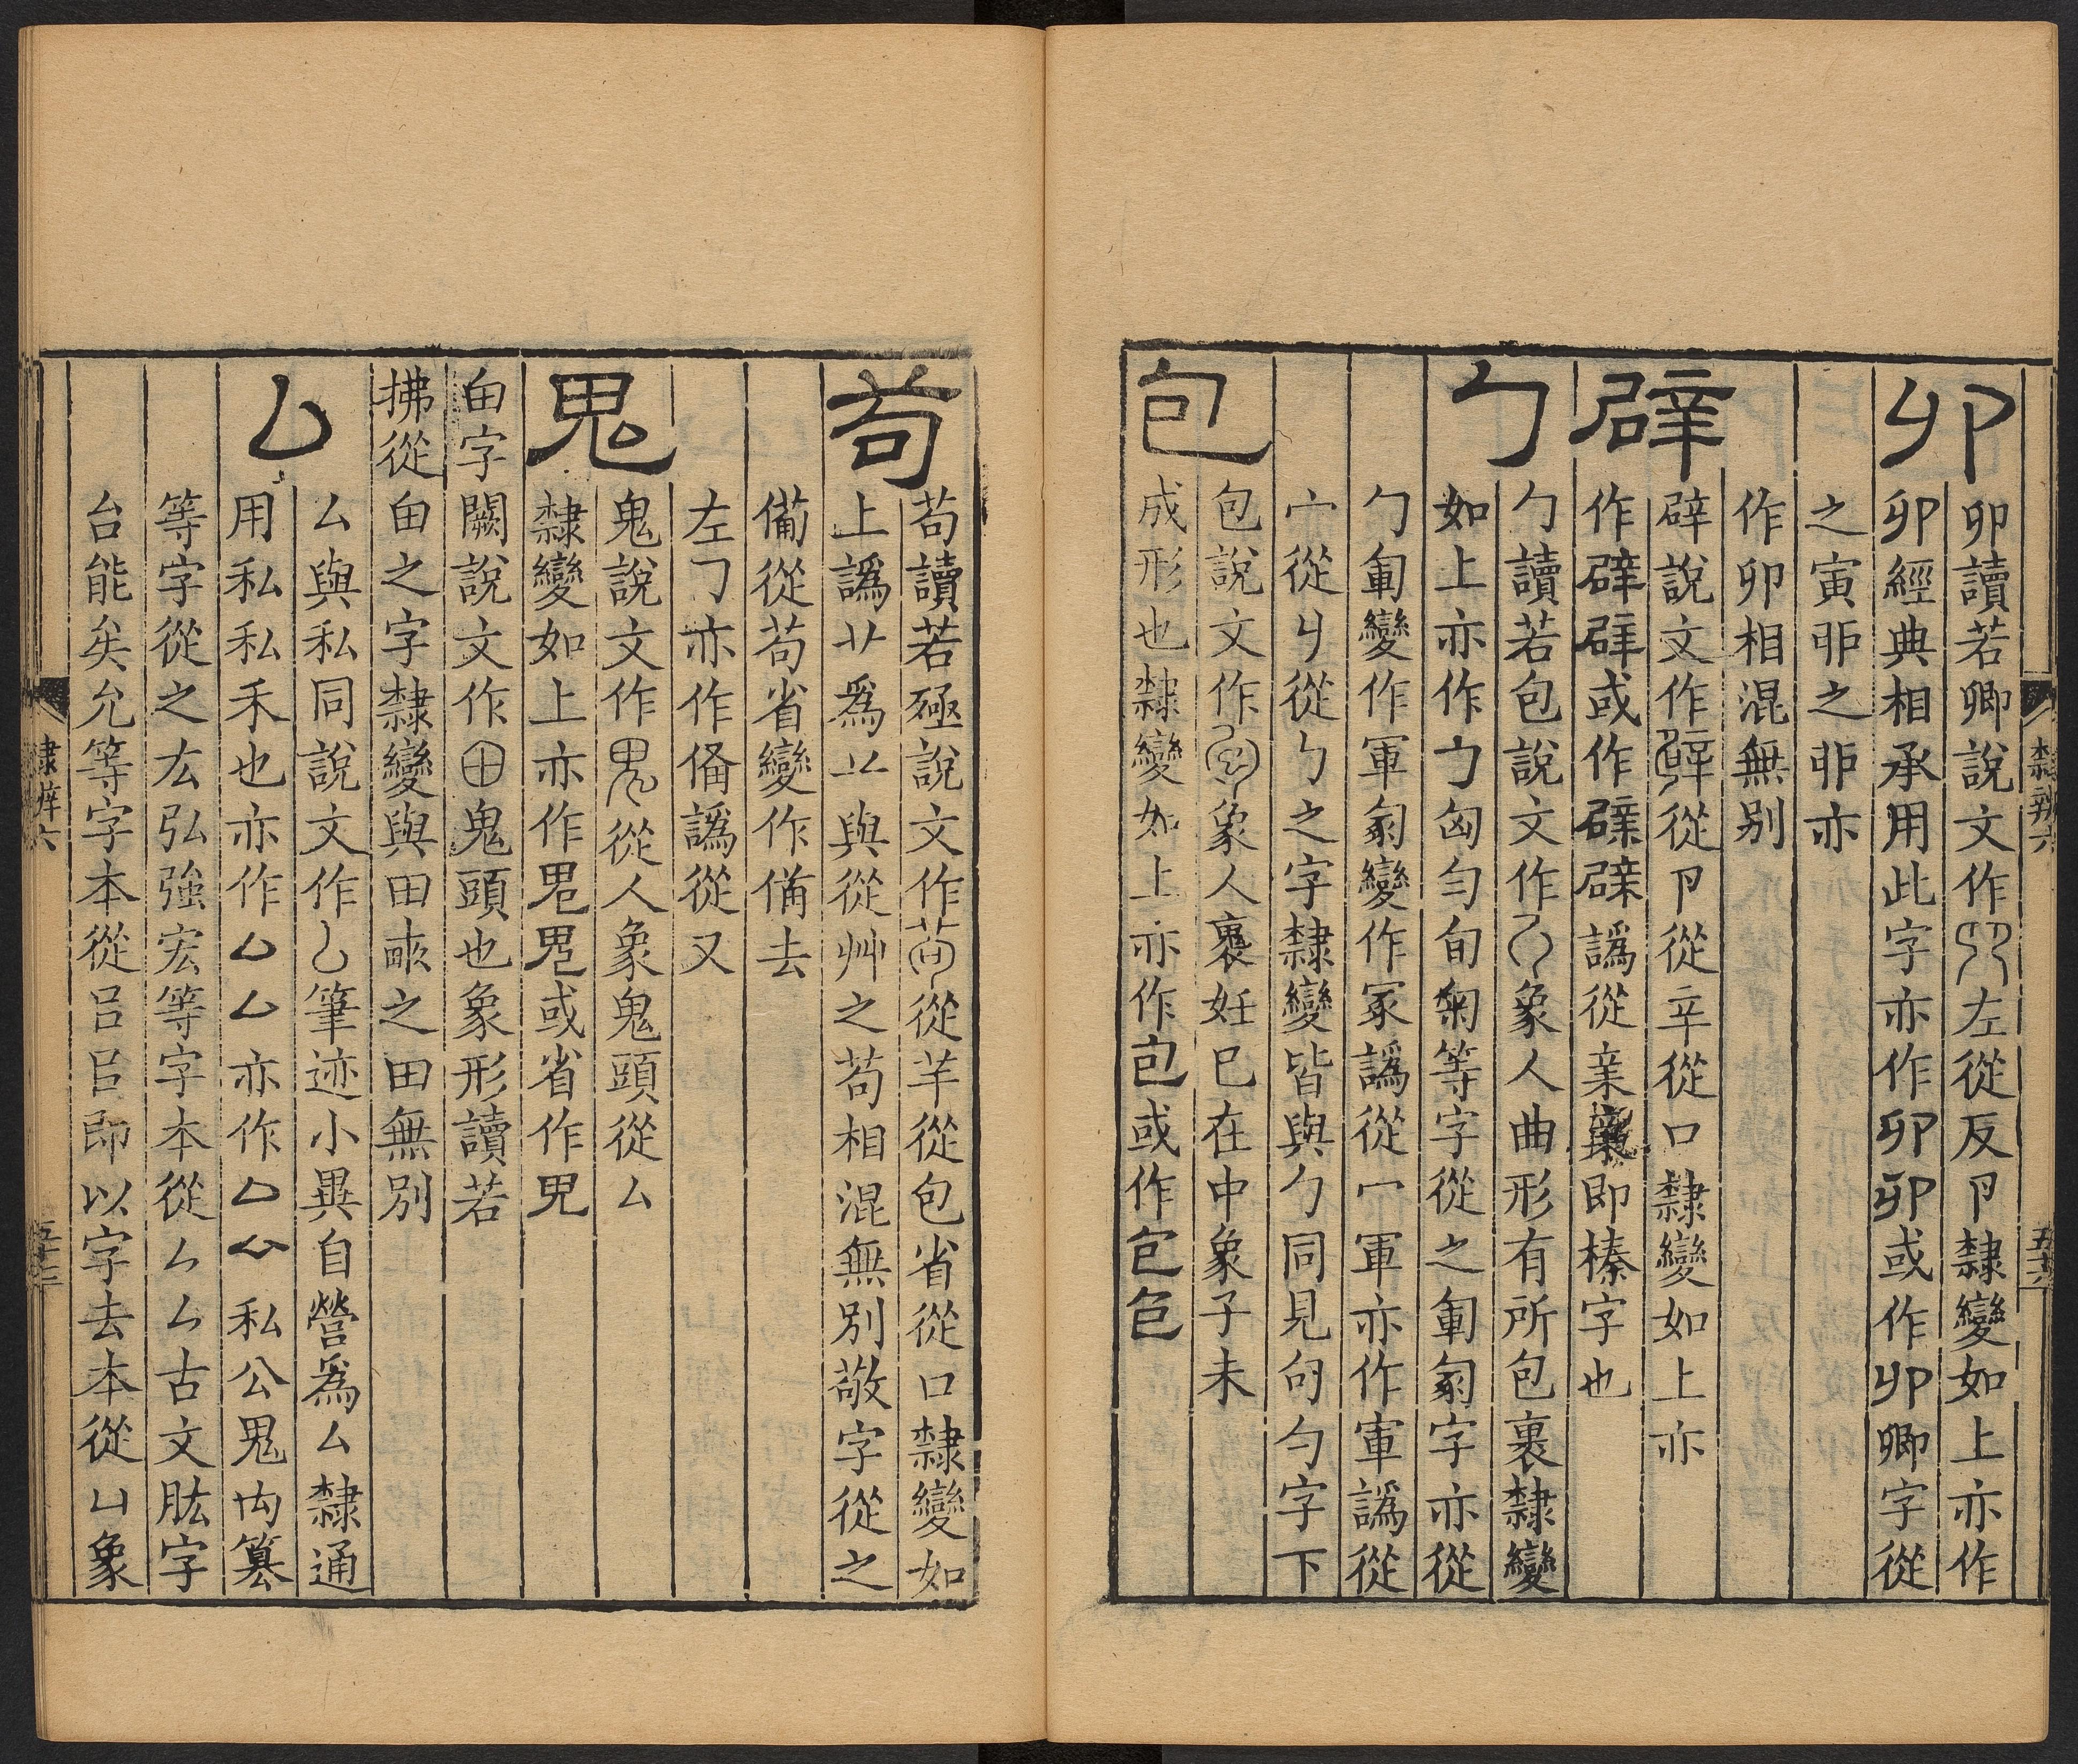 卯
卯讀若卿說文作左從反卪隸變如上亦作
卯經典相承用此字亦作卯卯或作卯卿字從
之寅戼之非亦
作卯相混無別
辟
辟說文作從卪從辛從口隸變如上亦
作辟辟或作辟辟譌從亲即榛字也
勹
勹讀若包說文作象人曲形有所包裹隸變
如上亦作勹匈勻旬匊等字從之匍匑字亦從
勹匍變作軍匑變作冢譌從冖軍亦作軍譌從
宀從丩從勹之字隸變皆與勹同見句勺字下
包
包說文作象人裹妊巳在中象子未
成形也隸變如上亦作包或作包包
隸辨六
五十六
茍
茍讀若亟說文作從羊從包省從口隸變如
上譌艹爲䒑與從艸之苟相混無別敬字從之
備從茍省變作備去
左㇆亦作俻譌從又
鬼
鬼說文作從人象鬼頭從厶
隸變如上亦作鬼鬼或省作
甶字闕說文作鬼頭也象形讀若
拂從甶之字隸變與田畞之田無別
厶
厶與私同說文作筆迹小異自營爲厶隸通
用私私禾也亦作厶厶亦作厶 私公鬼禸篡
等字從之厷弘強宏等字本從ㄥㄥ古文肱字
台能矣允等字本從㠯㠯即以字去本從凵象
隸辨六
五十七